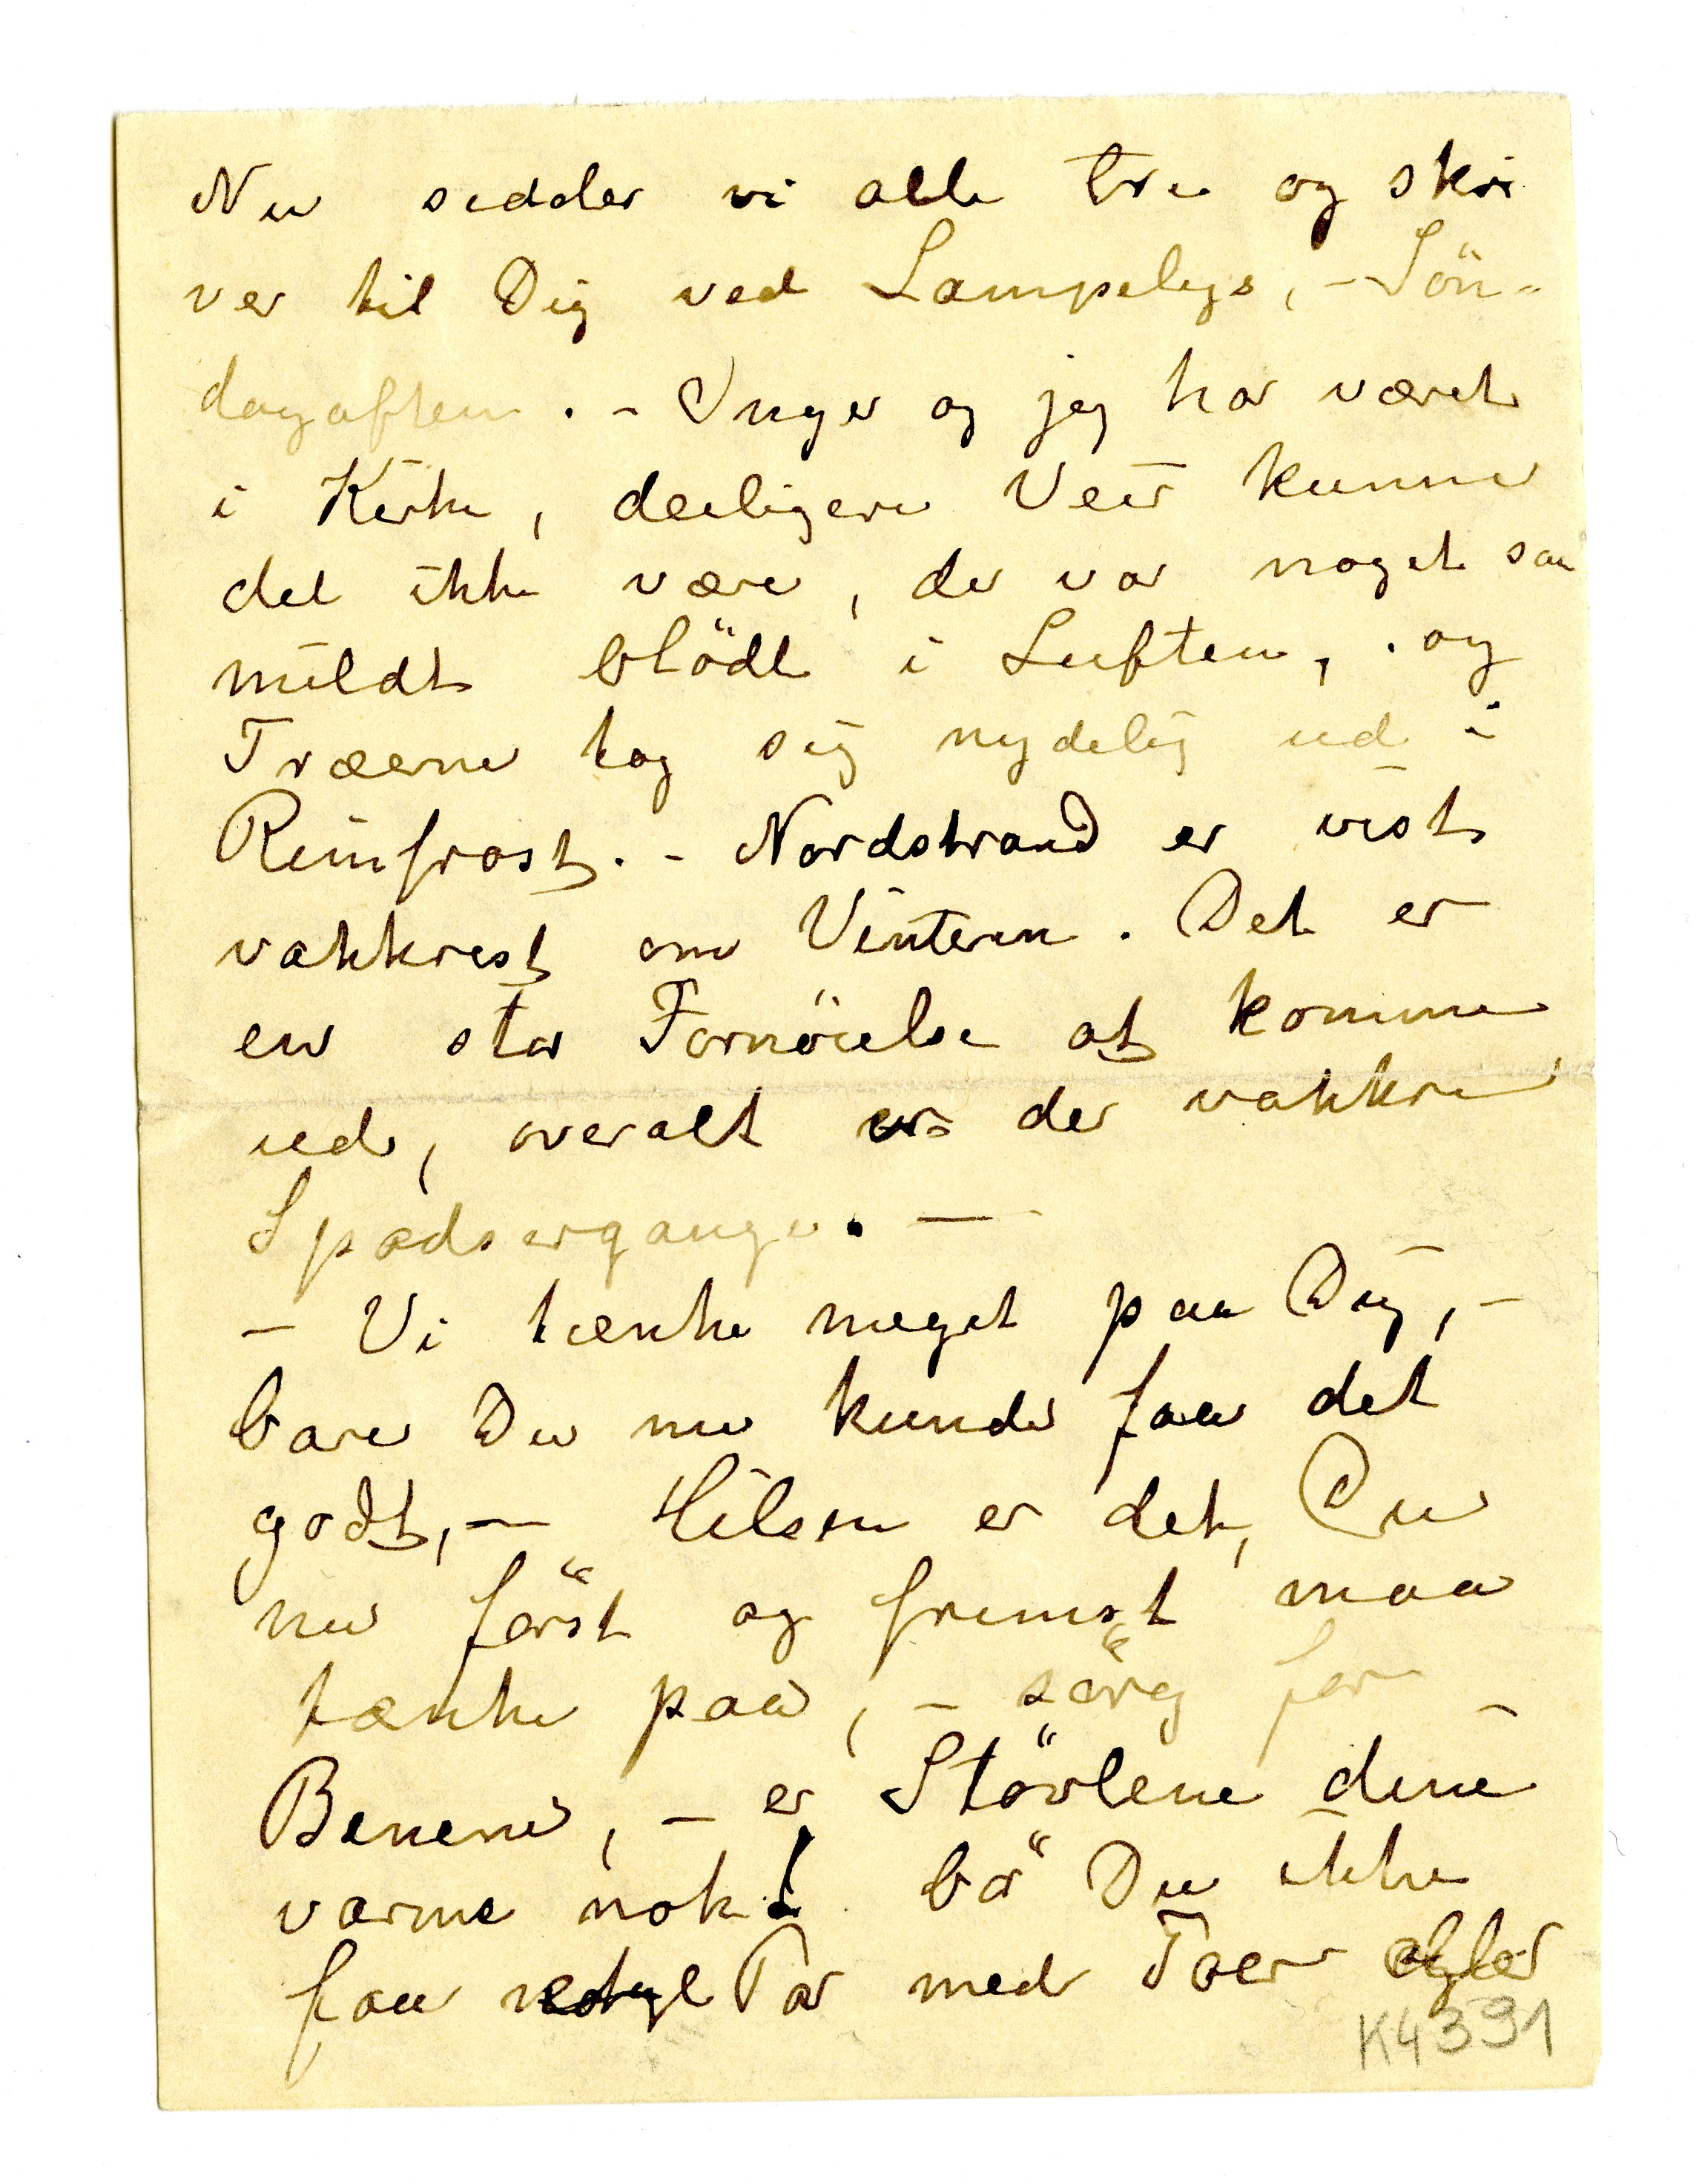 Nu sidder vi alle tre og skri
ver til Dig ved Lampelys, - Sön-
dagaften. - Inger og jeg har været
i Kirke, deiligere Veir kunne
det ikke være, der var noget saa
mildt blödt i Luften, og
Træerne tog sig nydelig ud i
Riimfrost. - Nordstrand er vist
vakkrest om Vinteren. Det er
en stor Fornöielse at komme
ud, overalt er der vakkre
Spadsergange. -
- Vi tænke meget paa Dig, -
bare Du nu kunde faa det
godt, - Hilsen er det, Du
nu först og fremst maa
tænke paa, - sörg for
Benene, - er Stövlene dine
varme nok! bör Du ikke
faa Par med Foer
K4391